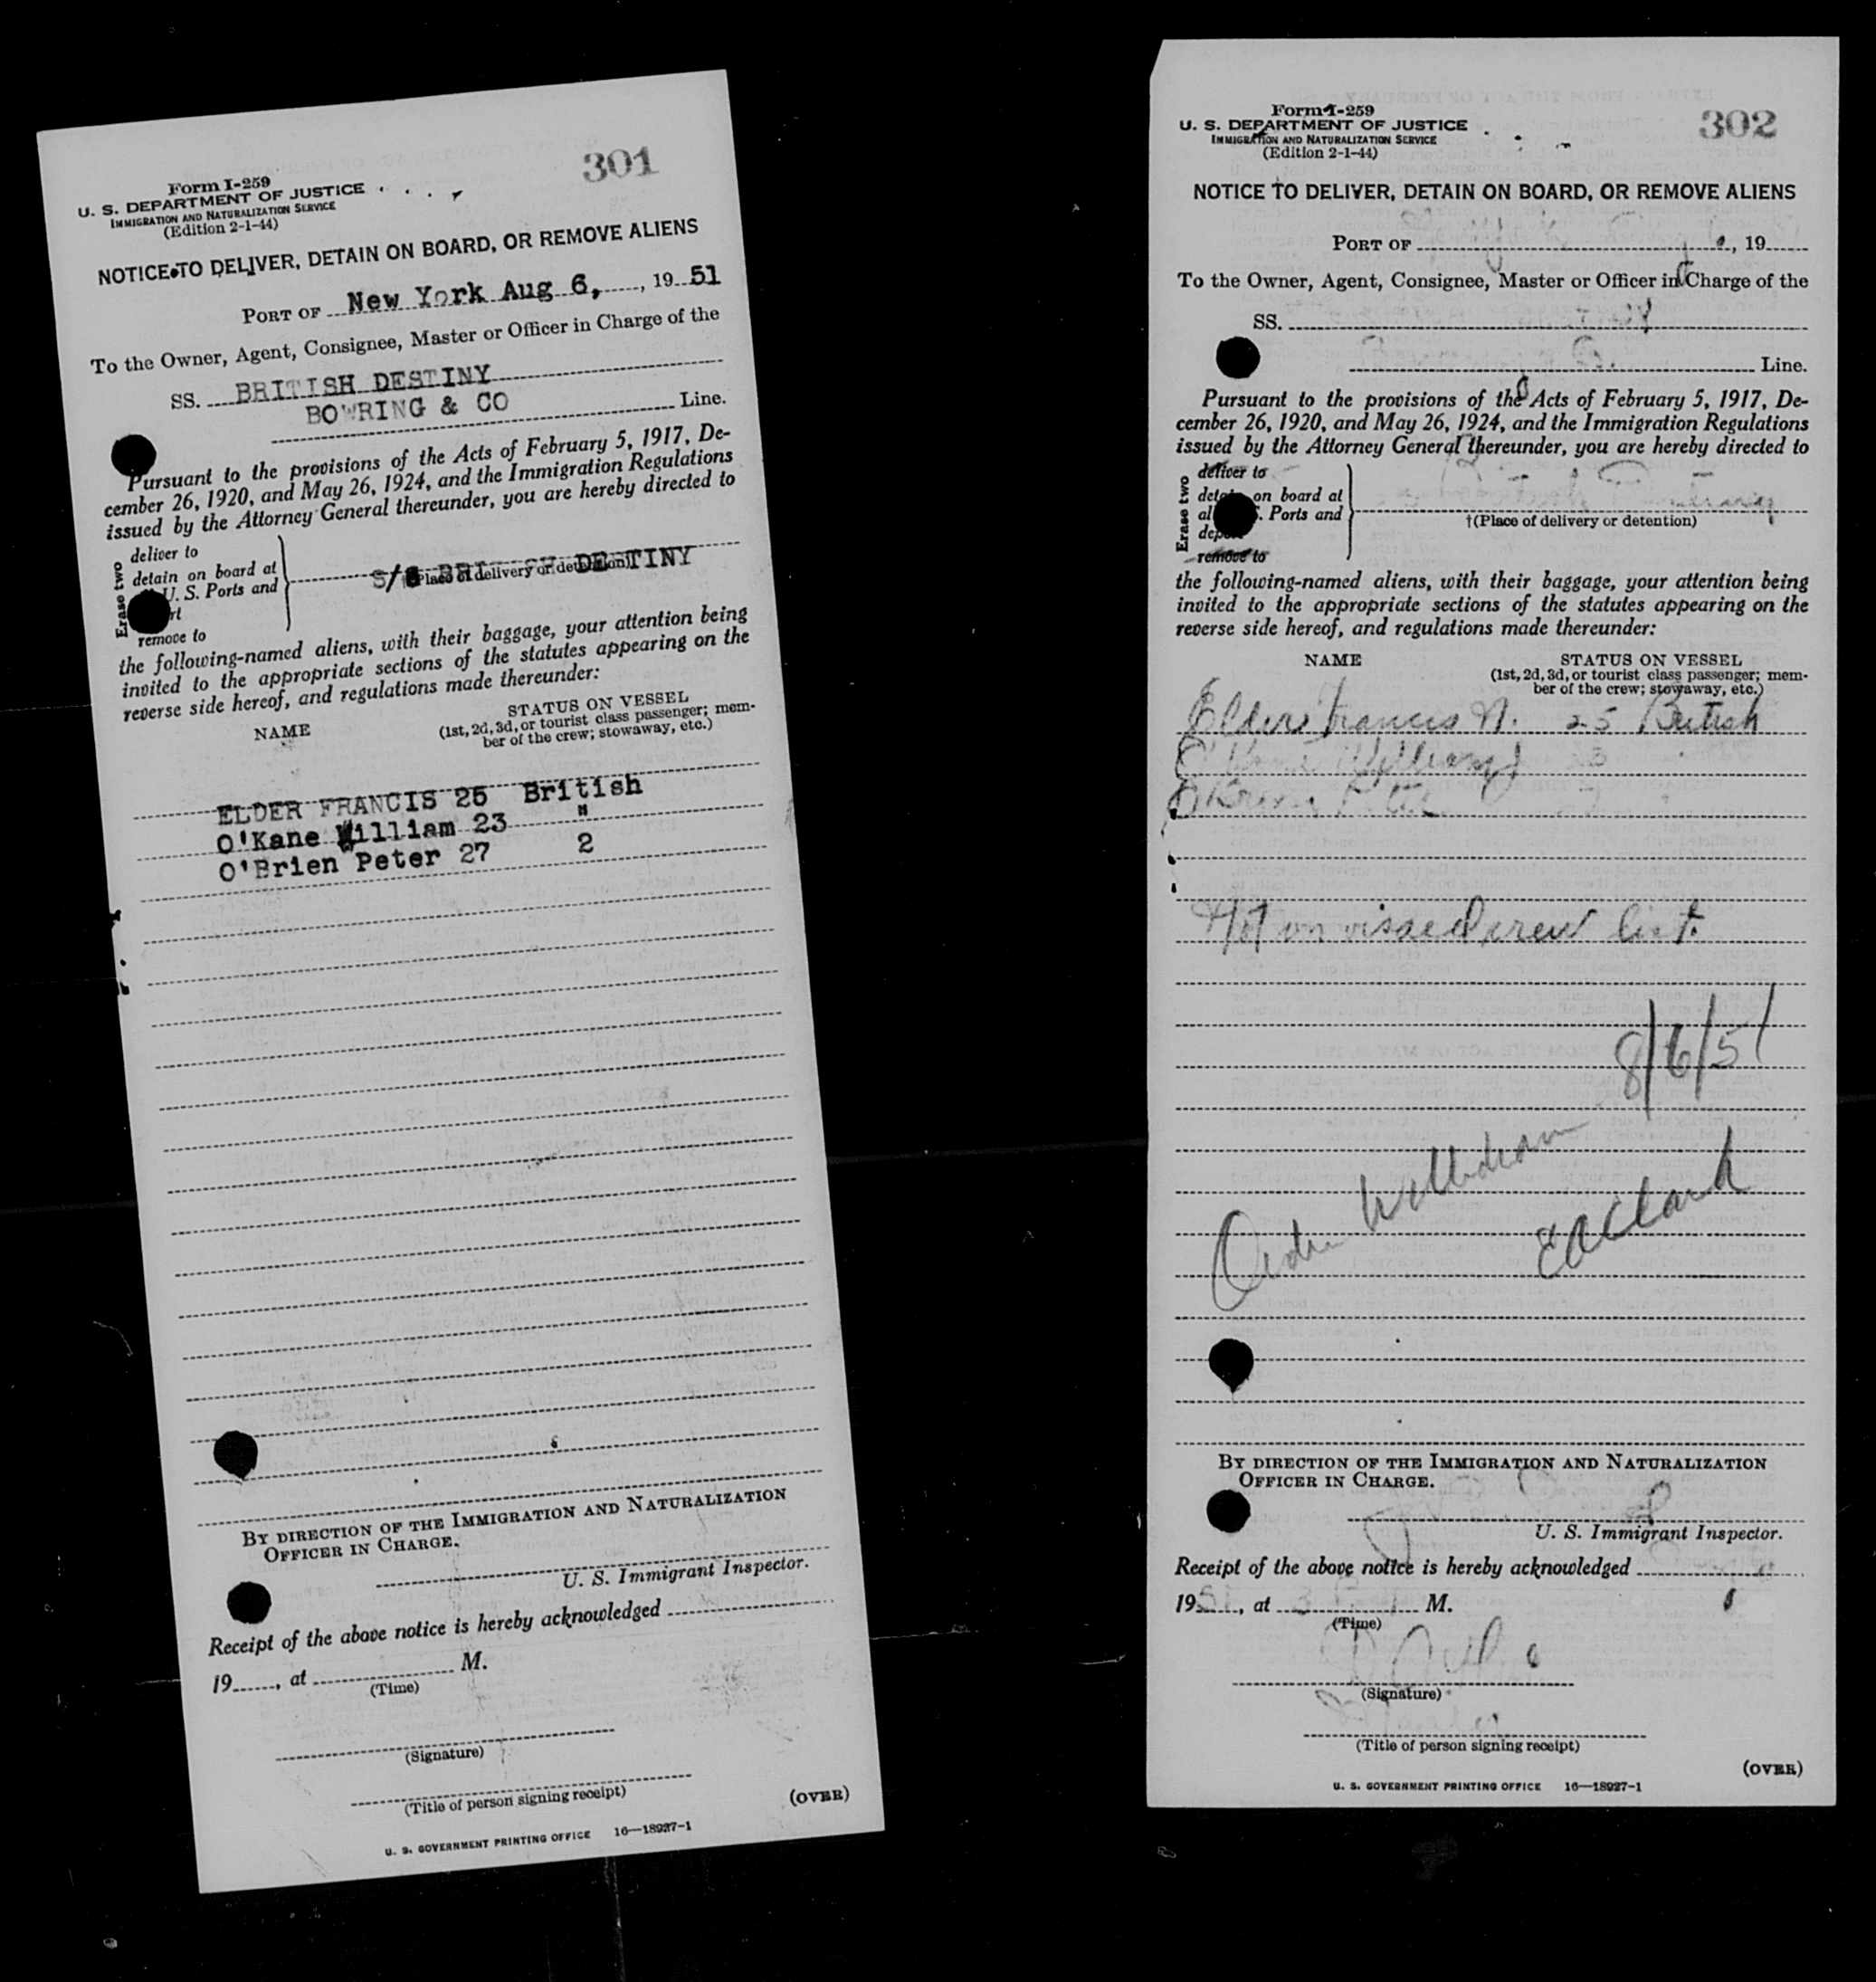 301
Form I-259
U. S. DEPARTMENT OF JUSTICE
IMMIGRATION AND NATURALIZATION SERVICE
(Edition 2-1-44)
NOTICE TO DELIVER, DETAIN ON BOARD, OR REMOVE ALIENS
PORT OF New York Aug 6, , 19 51
To the Owner, Agent, Consignee, Master or Officer in Charge of the
SS. BRITISH DESTINY
BOWRING & CO Line.
Pursuant to the provisions of the Acts of February 5, 1917, De-
cember 26, 1920, and May 26, 1924, and the Immigration Regulations
issued by the Attorney General thereunder, you are hereby directed to
Erase two
deliver to
detain on board at
U. S. Ports and
remove to
S/S DESTINY
(Place of delivery or detention)
the following-named aliens, with their baggage, your attention being
invited to the appropriate sections of the statutes appearing on the
reverse side hereof, and regulations made thereunder:
NAME STATUS ON VESSEL
(1st, 2d, 3d, or tourist class passenger; mem-
ber of the crew; stowaway, etc.)
ELDER FRANCIS 25 British
O'Kane William 23 "
O'Brien Peter 27 2
BY DIRECTION OF THE IMMIGRATION AND NATURALIZATION
OFFICER IN CHARGE.
U. S. Immigrant Inspector.
Receipt of the above notice is hereby acknowledged
19......, at M.
(Time)
(Signature)
(Title of person signing receipt)
(OVER)
U. S. GOVERNMENT PRINTING OFFICE 16—18927-1
302
Form I-259
U. S. DEPARTMENT OF JUSTICE
IMMIGRATION AND NATURALIZATION SERVICE
(Edition 2-1-44)
NOTICE TO DELIVER, DETAIN ON BOARD, OR REMOVE ALIENS
PORT OF , 19
To the Owner, Agent, Consignee, Master or Officer in Charge of the
SS.
Line.
Pursuant to the provisions of the Acts of February 5, 1917, De-
cember 26, 1920, and May 26, 1924, and the Immigration Regulations
issued by the Attorney General thereunder, you are hereby directed to
Erase two
deliver to
on board at
Ports and
remove to
†(Place of delivery or detention)
the following-named aliens, with their baggage, your attention being
invited to the appropriate sections of the statutes appearing on the
reverse side hereof, and regulations made thereunder:
NAME STATUS ON VESSEL
(1st, 2d, 3d, or tourist class passenger; mem-
ber of the crew; stowaway, etc.)
Elder Francis N. 25 British
William
Not on visaed crew list.
8/6/51
EA Clark
BY DIRECTION OF THE IMMIGRATION AND NATURALIZATION
OFFICER IN CHARGE.
U. S. Immigrant Inspector.
Receipt of the above notice is hereby acknowledged
1951, at M.
(Time)
(Signature)
(Title of person signing receipt)
(OVER)
U. S. GOVERNMENT PRINTING OFFICE 16—18927-1